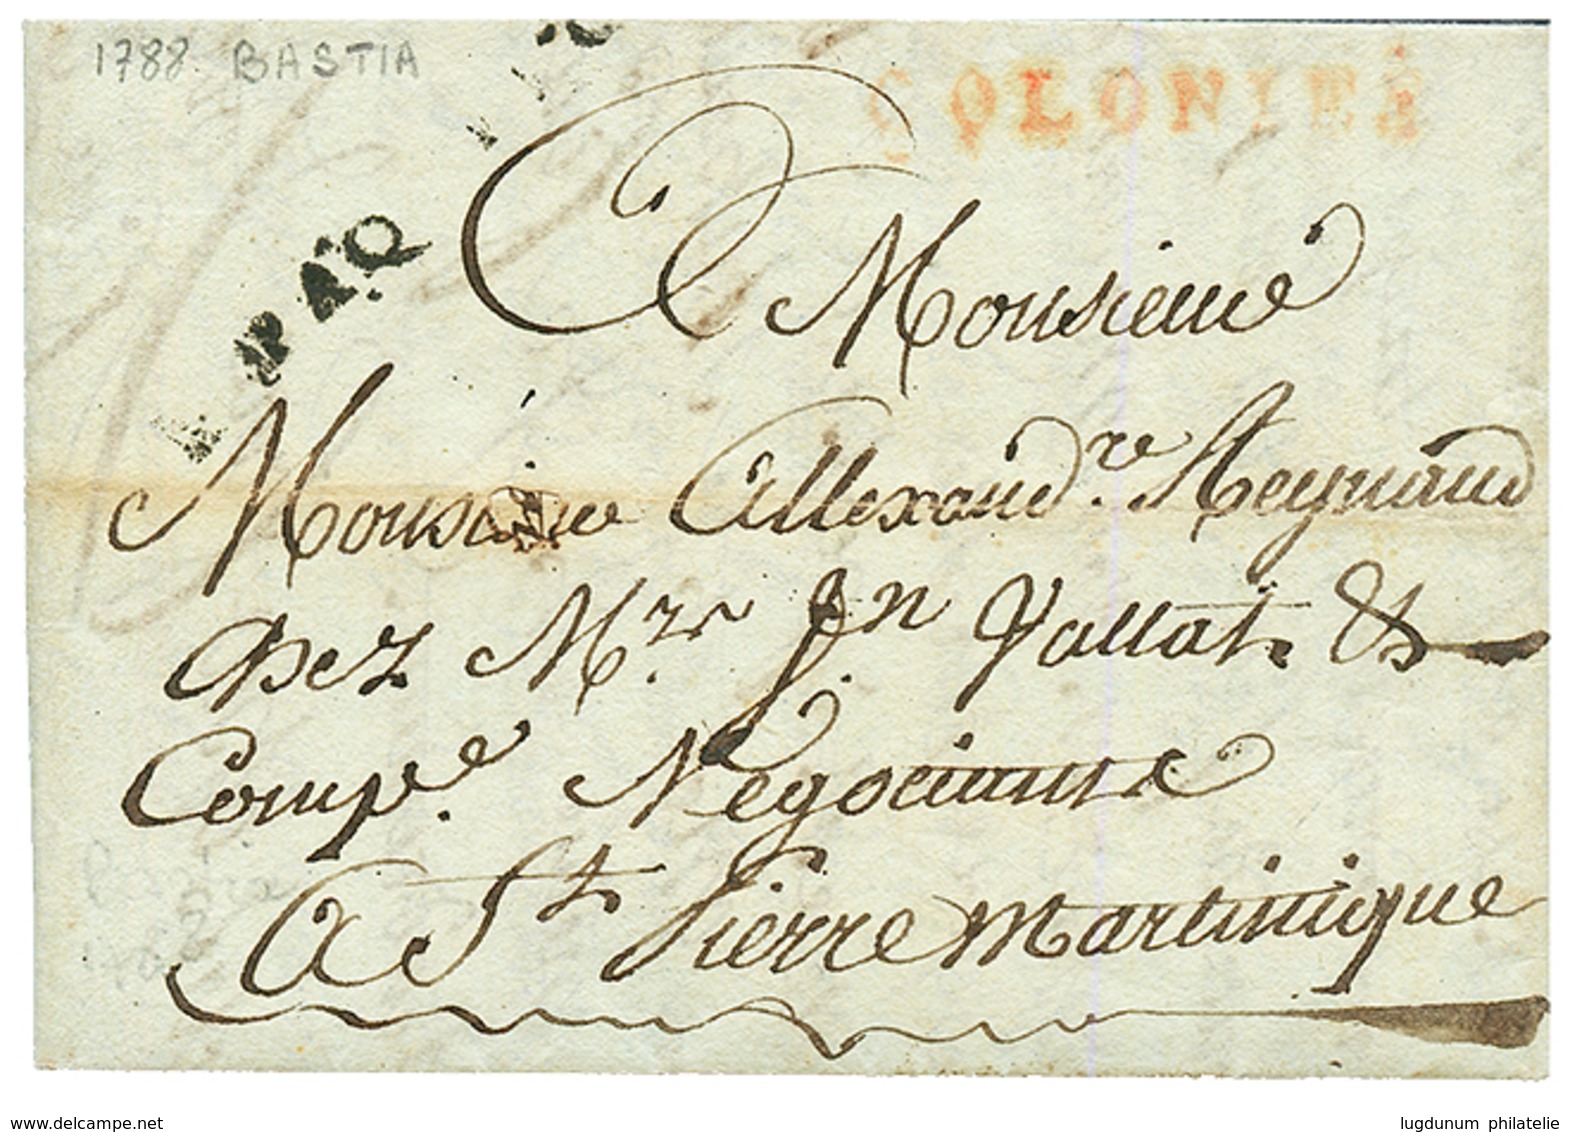 1788. BASTIA
COLONIES
PAQ
Monsieur
Monsieur Allexand.re Reynaud
Chez M.rs J.n Vallat &
Comp.e Negociants
A St Pierre Martinique
www.delcampe.net
lugdunum philatelie